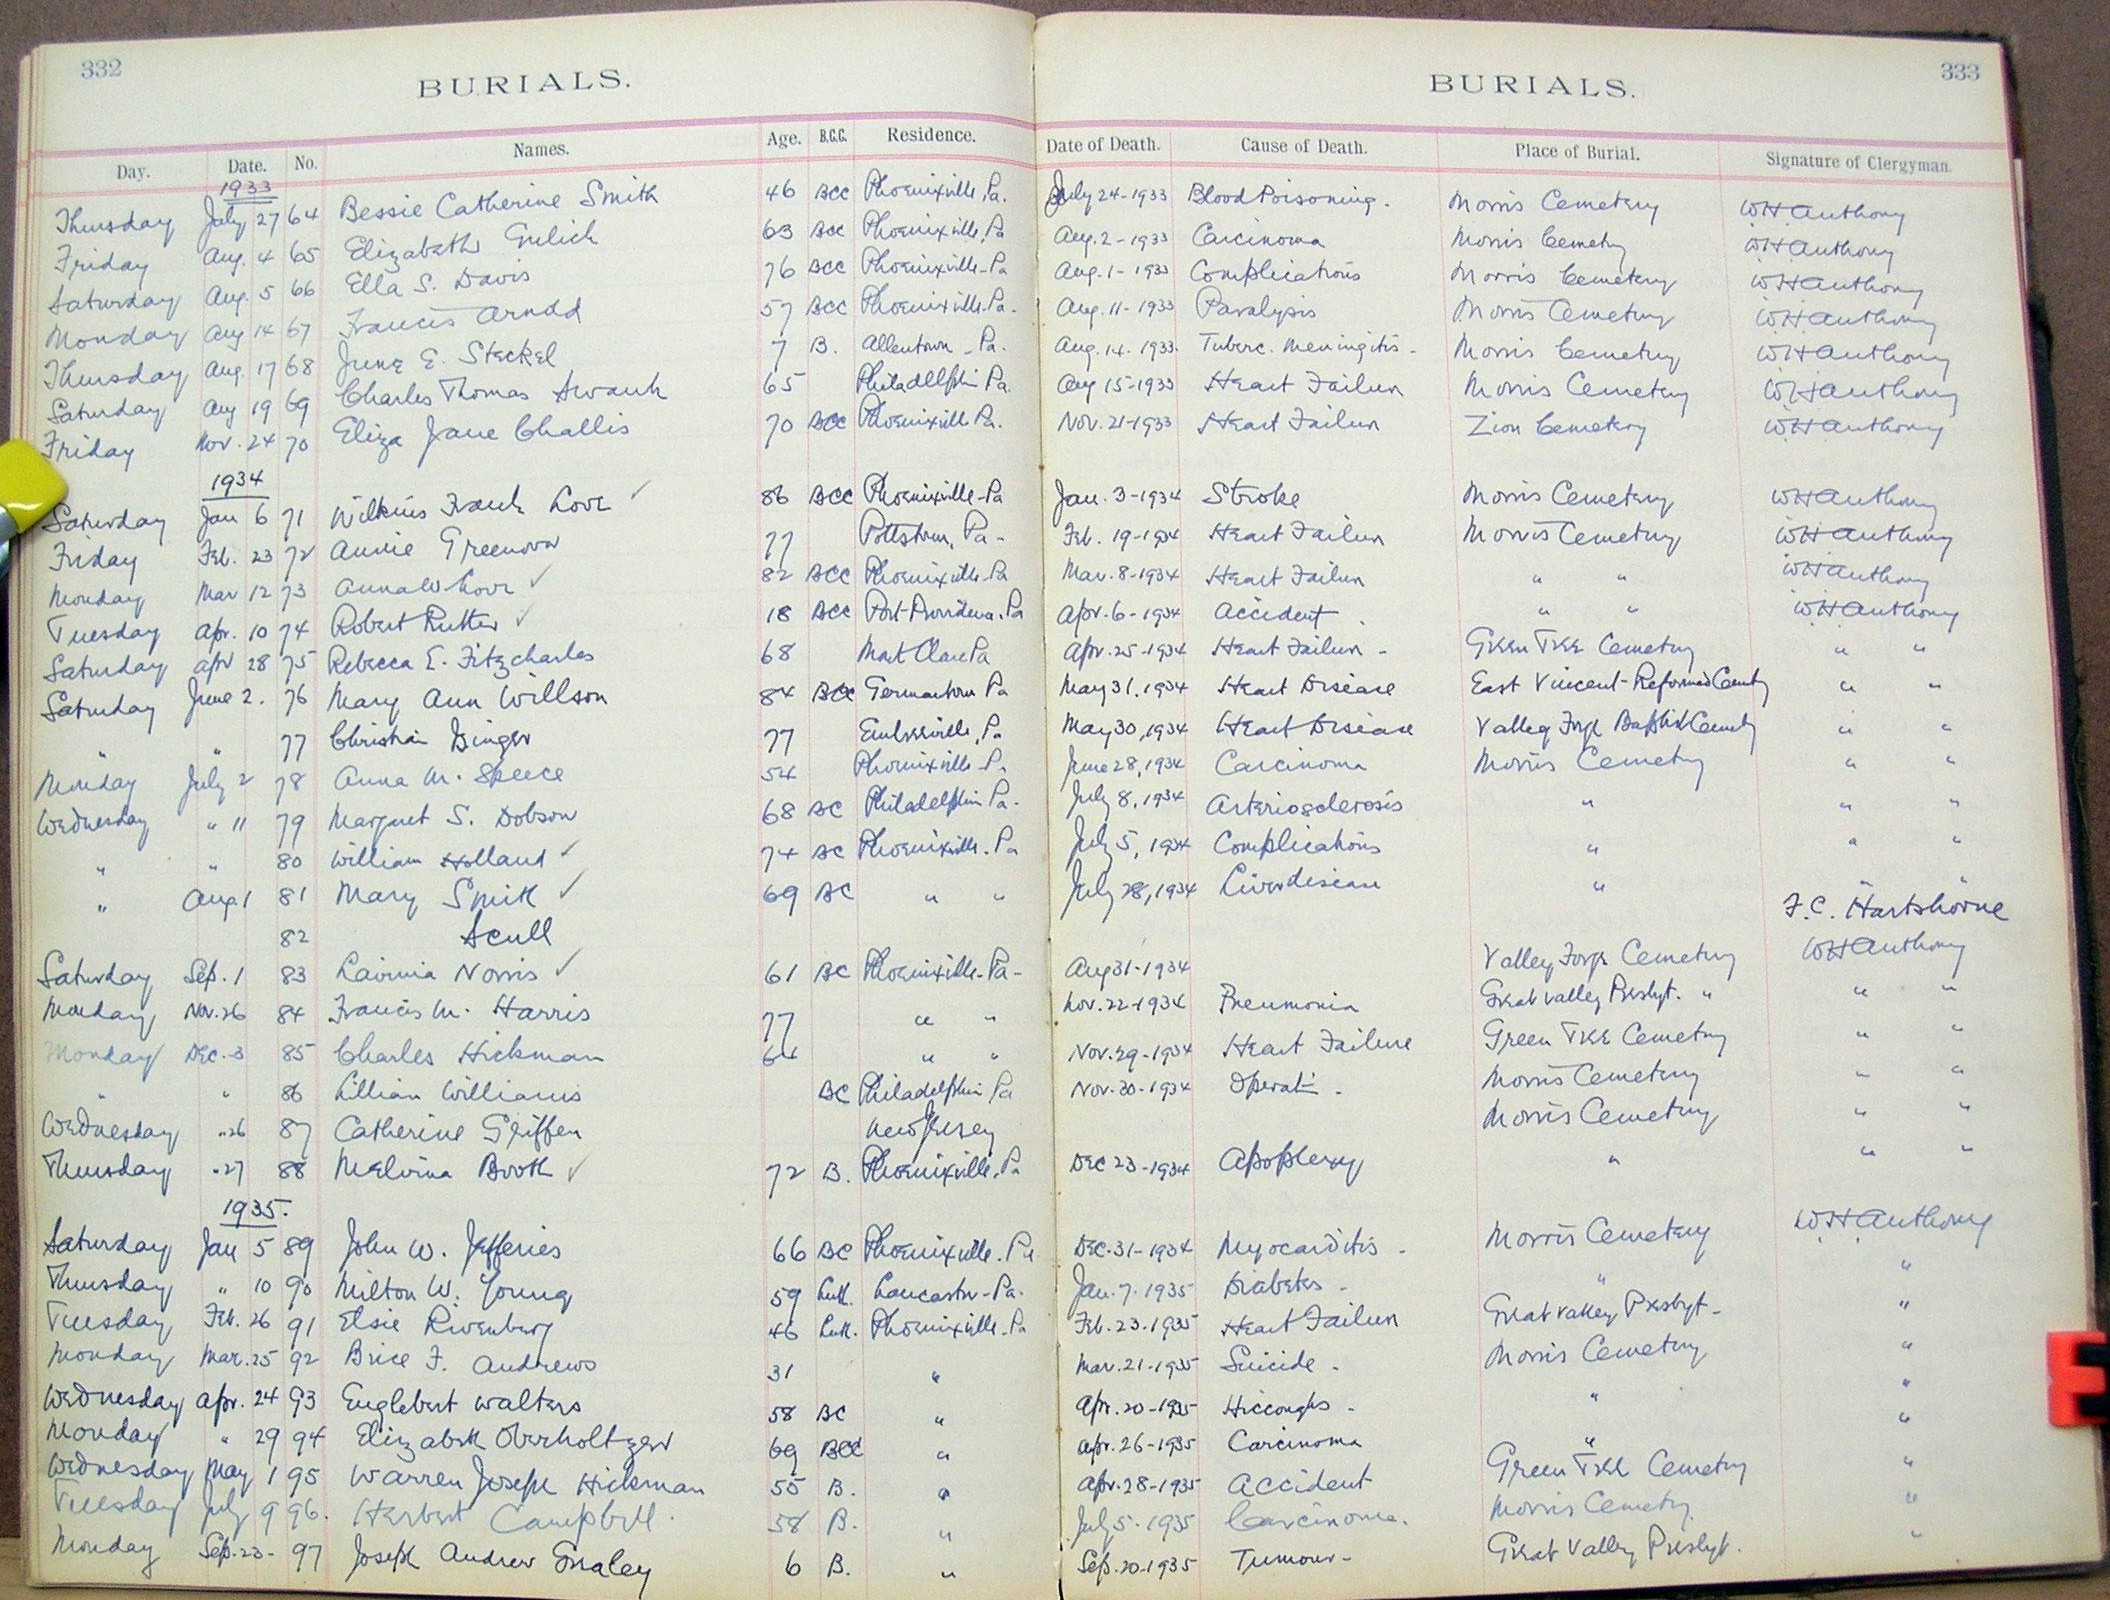 332
BURIALS.
BURIALS.
333
Day. Date. No. Names. Age. B.C.C. Residence. Date of Death. Cause of Death. Place of Burial. Signature of Clergyman.
1933
Thursday July 27 64 Bessie Catherine Smith 46 BCC Phoenixville, Pa. July 24-1933 Blood Poisoning. Morris Cemetery WHAnthony
Friday Aug. 4 65 Elizabeth Gulich 63 BCC Phoenixville, Pa Aug. 2-1933 Carcinoma Morris Cemetry WHAnthony
Saturday Aug. 5 66 Ella S. Davis 76 BCC Phoenixville-Pa Aug. 1-1933 Complications Morris Cemetery WHAnthony
Monday Aug 14 67 Francis Arndd 57 BCC Phoenixville-Pa. Aug. 11-1933 Paralysis Morris Cemetery WHAnthony
Thursday Aug. 17 68 June E. Steckel 7 B. Allentown-Pa. Aug. 14. 1933. Tuberc. Meningitis- Morris Cemetery WHAnthony
Saturday Aug 19 69 Charles Thomas Swank 65 Philadelphia Pa. Aug 15-1933 Heart Failure Morris Cemetery WHAnthony
Friday Nov. 24 70 Eliza Jane Challis 70 BCC Phoenixville Pa. Nov. 21-1933 Heart Failure Zion Cemetery WHAnthony
1934
Saturday Jan 6 71 Wilkins Frank Love ✓ 86 BCC Phoenixville-Pa Jan. 3-1934 Stroke Morris Cemetery WHAnthony
Friday Feb. 23 72 Annie Greenover 77 Pottstown, Pa- Feb. 19-1934 Heart Failure Morris Cemetery WHAnthony
Monday Mar 12 73 Anna W Love ✓ 82 BCC Phoenixville-Pa Mar. 8-1934 Heart Failure " " WHAnthony
Tuesday Apr. 10 74 Robert Rutter ✓ 18 BCC Port-Providence. Pa Apr. 6-1934 Accident " " WHAnthony
Saturday Apr 28 75 Rebecca E. Fitzcharles 68 Mont Clare Pa Apr. 25-1934 Heart Failure- Green Tree Cemetery " "
Saturday June 2. 76 Mary Ann Willson 84 BCC Germantown Pa May 31, 1934 Heart Disease East Vincent-Reformed Cemty " "
" " 77 Christian Dinger 77 Embreeville, Pa May 30, 1934 Heart Disease Valley Forge Baptist Cemety " "
Monday July 2 78 Anna M. Speece 54 Phoenixville-Pa June 28, 1934 Carcinoma Morris Cemetry " "
Wednesday " 11 79 Margaret S. Dobson 68 BC Philadelphia Pa- July 8, 1934 Arteriosclerosis " " "
" " 80 William Holland ✓ 74 BC Phoenixville-Pa July 5, 1934 Complications " " "
" Aug 1 81 Mary Smith ✓ 69 BC " " July 28, 1934 Liver disease " " "
82 Scull F.C. Hartshorne
Saturday Sep. 1 83 Lavinia Norris ✓ 61 BC Phoenixville-Pa- Aug 31-1934 Valley Forge Cemetery WHAnthony
Monday Nov. 26 84 Francis M. Harris 77 " " Nov. 22-1934 Pneumonia Great Valley Presbyt. " " "
Monday Dec. 3 85 Charles Hickman 64 " " Nov. 29-1934 Heart Failure Green Tree Cemetery " "
" " 86 Lillian Williams BC Philadelphia Pa Nov. 30-1934 Operati- Morris Cemetery " "
Wednesday " 26 87 Catherine Griffen New Jersey Morris Cemetery " "
Thursday " 27 88 Melvina Booth ✓ 72 B. Phoenixville, Pa Dec 23-1934 Apoplexy " " "
1935.
Saturday Jan 5 89 John W. Jefferies 66 BC Phoenixville. Pa Dec. 31-1934 Myocarditis- Morris Cemetery WHAnthony
Thursday " 10 90 Milton W. Young 59 Luth. Lancaster-Pa. Jan. 7. 1935 Diabetes- " "
Tuesday Feb. 26 91 Elsie Rivenburg 46 Luth. Phoenixville-Pa Feb. 23-1935 Heart Failure Great Valley Presbyt- "
Monday Mar. 25 92 Brice F. Andrews 31 " Mar. 21-1935 Suicide- Morris Cemetery "
Wednesday Apr. 24 93 Englebert Walters 58 BC " Apr. 20-1935 Hiccoughs- " "
Monday " 29 94 Elizabeth Oberholtzer 69 BCC " Apr. 26-1935 Carcinoma " "
Wednesday May 1 95 Warren Joseph Hickman 55 B. " Apr. 28-1935 Accident Green Tree Cemetery "
Tuesday July 9 96. Herbert Campbell. 58 B. " July 5-1935 Carcinoma. Morris Cemetry. "
Monday Sep. 23- 97 Joseph Andrew Snaley 6 B. " Sep. 20-1935 Tumour- Great Valley Presbyt. "